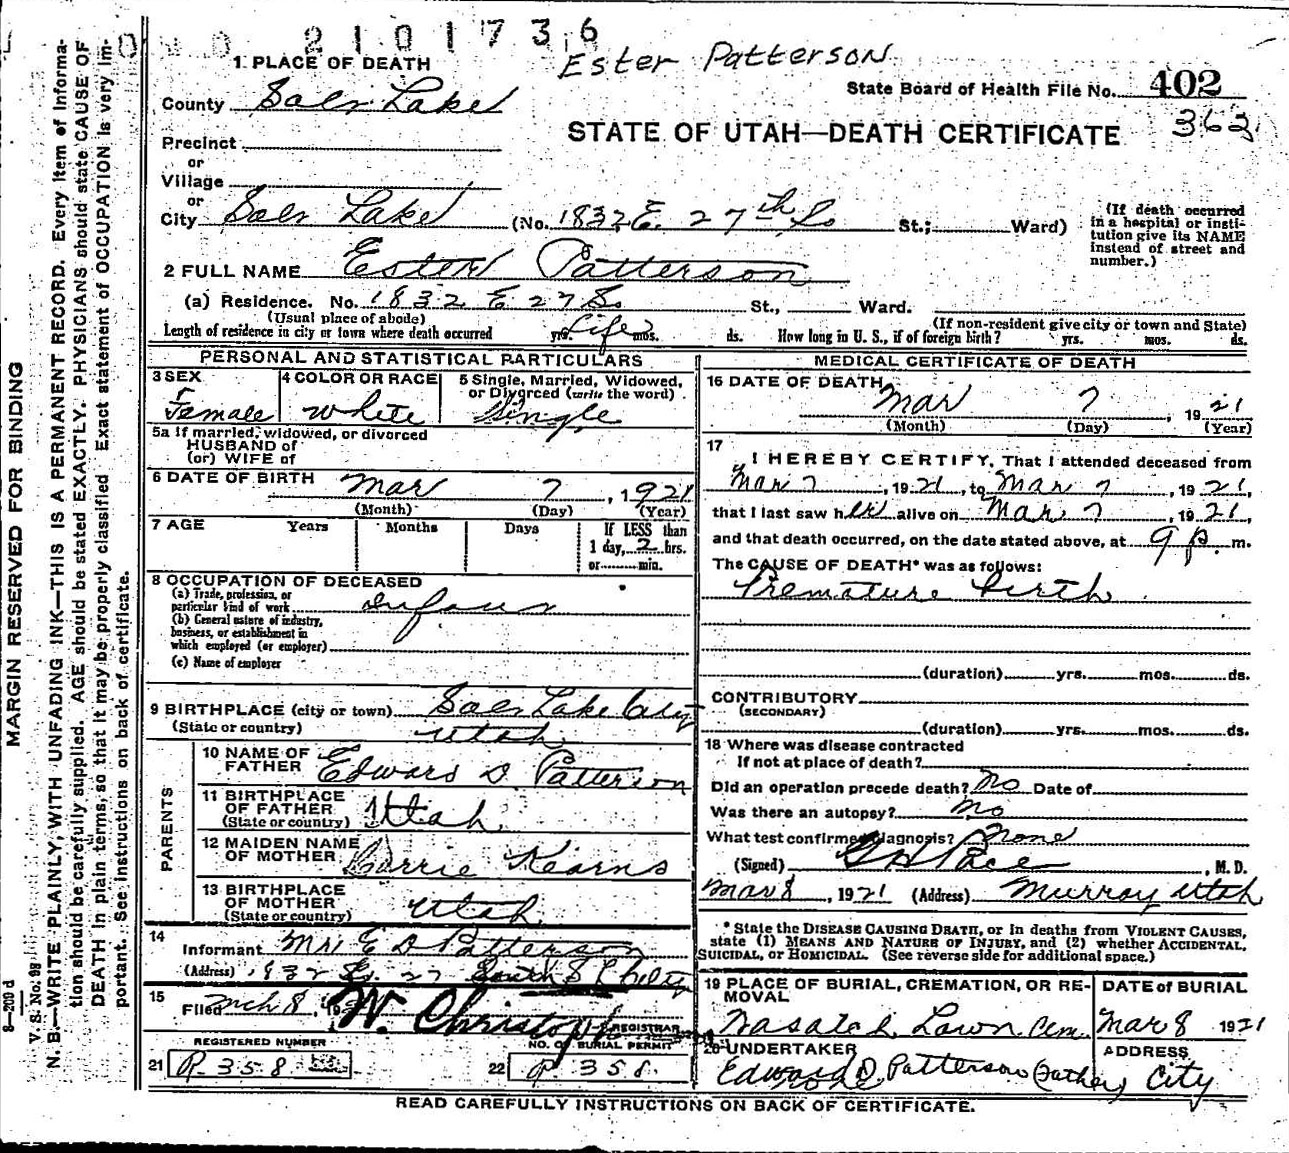 2101736
Ester Patterson
1 PLACE OF DEATH
State Board of Health File No. 402
County Salt Lake
362
STATE OF UTAH—DEATH CERTIFICATE
Precinct
or
Village
or
City Salt Lake (No. 1832 E. 27th So St.; Ward)
(If death occurred in a hospital or insti-
tution give its NAME
instead of street and
number.)
2 FULL NAME Ester Patterson
(a) Residence. No. 1832 E 27 So. St., Ward.
(Usual place of abode) (If non-resident give city or town and State)
Length of residence in city or town where death occurred yrs. Life mos. ds. How long in U. S., if of foreign birth? yrs. mos. ds.
PERSONAL AND STATISTICAL PARTICULARS
3 SEX
Female
4 COLOR OR RACE
White
5 Single, Married, Widowed,
or Divorced (write the word)
Single
5a If married, widowed, or divorced
HUSBAND of
(or) WIFE of
6 DATE OF BIRTH Mar 7, 1921
(Month) (Day) (Year)
7 AGE Years Months Days If LESS than
1 day, 2 hrs.
or min.
8 OCCUPATION OF DECEASED
(a) Trade, profession, or
particular kind of work infant
(b) General nature of industry,
business, or establishment in
which employed (or employer)
(c) Name of employer
9 BIRTHPLACE (city or town) Salt Lake City
(State or country) Utah
PARENTS
10 NAME OF
FATHER Edward D. Patterson
11 BIRTHPLACE
OF FATHER
(State or country) Utah.
12 MAIDEN NAME
OF MOTHER Carrie Kearns
13 BIRTHPLACE
OF MOTHER
(State or country) Utah
14
Informant Mrs E D Patterson
(Address) 1832 27 South S L City
15
Filed Mch 8, 19 W. Christoph
REGISTRAR
REGISTERED NUMBER
21 P. 358
NO. OF BURIAL PERMIT
22 P 358.
MEDICAL CERTIFICATE OF DEATH
16 DATE OF DEATH
Mar 7, 1921
(Month) (Day) (Year)
17
I HEREBY CERTIFY, That I attended deceased from
Mar 7, 1921, to Mar 7, 1921,
that I last saw her alive on Mar 7, 1921,
and that death occurred, on the date stated above, at 9 p. m.
The CAUSE OF DEATH* was as follows:
Premature birth
(duration) yrs. mos. ds.
CONTRIBUTORY
(SECONDARY)
(duration) yrs. mos. ds.
18 Where was disease contracted
If not at place of death?
Did an operation precede death? No Date of
Was there an autopsy? No
What test confirmed diagnosis? None
(Signed) Pace, M. D.
Mar 8, 1921 (Address) Murray Utah
* State the DISEASE CAUSING DEATH, or in deaths from VIOLENT CAUSES,
state (1) MEANS AND NATURE OF INJURY, and (2) whether ACCIDENTAL,
SUICIDAL, or HOMICIDAL. (See reverse side for additional space.)
19 PLACE OF BURIAL, CREMATION, OR RE-
MOVAL
Wasatch Lawn Cem.
DATE of BURIAL
Mar 8 1921
20 UNDERTAKER
Edward D. Patterson (Father)
none
ADDRESS
City
READ CAREFULLY INSTRUCTIONS ON BACK OF CERTIFICATE.
MARGIN RESERVED FOR BINDING
8—209 d
V. S. No. 99
N. B.—WRITE PLAINLY, WITH UNFADING INK—THIS IS A PERMANENT RECORD. Every item of informa-
tion should be carefully supplied. AGE should be stated EXACTLY. PHYSICIANS should state CAUSE OF
DEATH in plain terms, so that it may be properly classified. Exact statement of OCCUPATION is very im-
portant. See instructions on back of certificate.